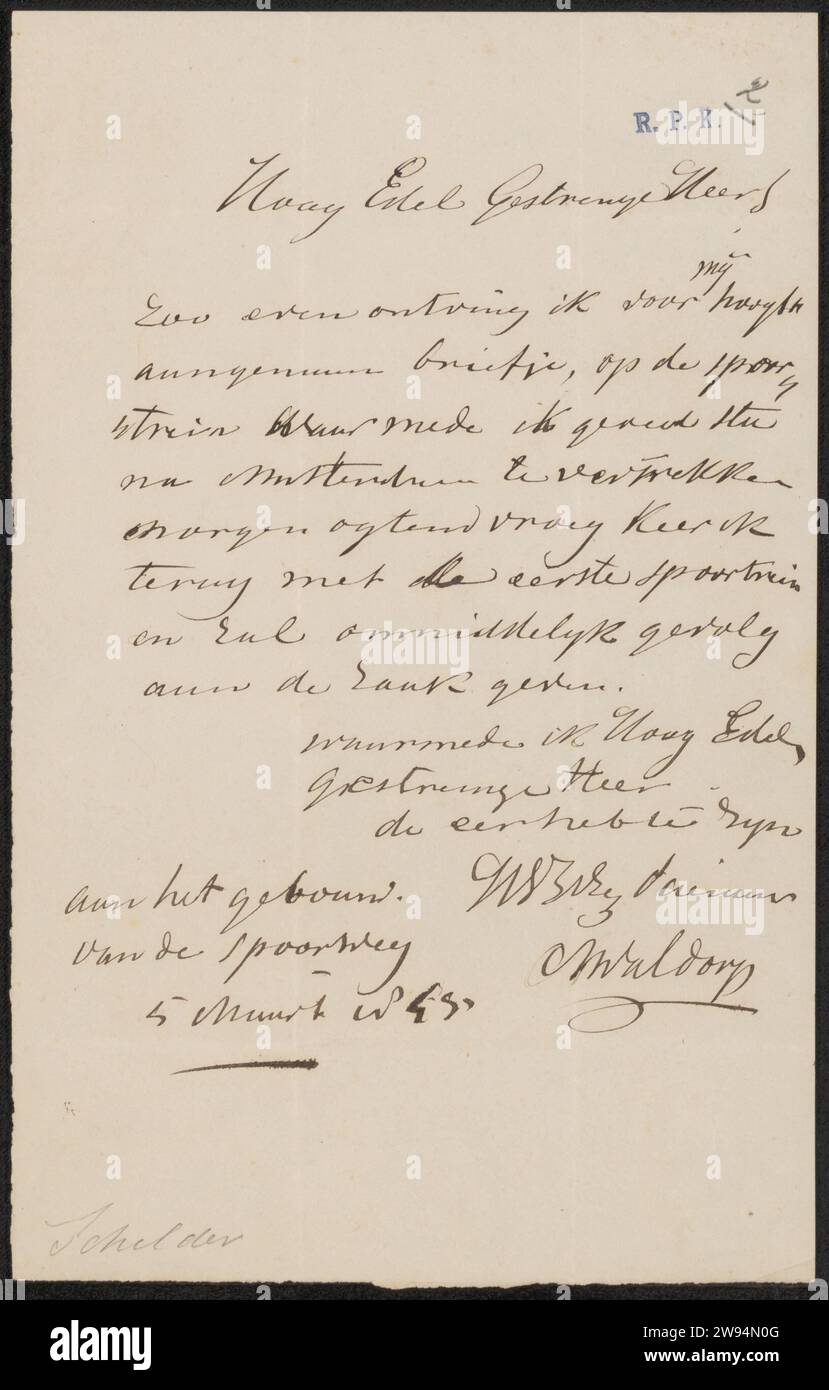 R. P. K.
Hoog Edel Gestrenge Heer
Zoo even ontving ik voor mij hoogst
aangenaam briefje, op de spoor
trein waarmede ik gereed sta
na Amsterdam te vertrekken
morgen ogtend vroeg keer ik
terug met de eerste spoortrein
en zal onmiddelijk gevolg
aan de zaak geven.
waarmede ik Hoog Edel
Gestrenge Heer
de eer heb te zijn
aan het gebouw.
van de spoorweg
5 Maart
Waldorp
Schilder
alamy
Image ID: 2W94N0G
www.alamy.com